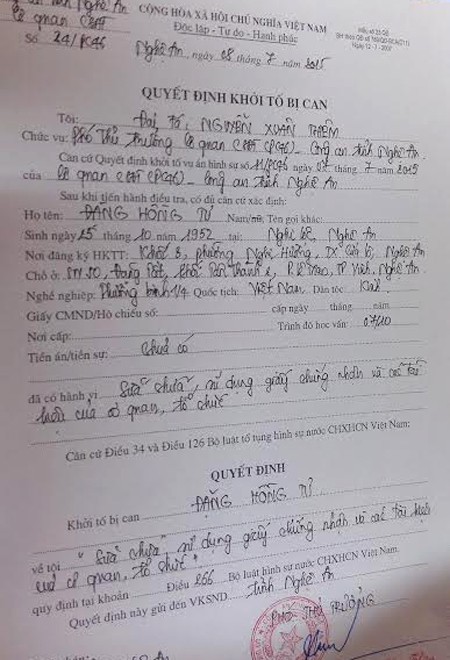 Công an tỉnh Nghệ An
Cơ quan CSĐT
Số 24/PC46
CỘNG HÒA XÃ HỘI CHỦ NGHĨA VIỆT NAM
Độc lập - Tự do - Hạnh phúc
Nghệ An, ngày 08 tháng 7 năm 2015
Mẫu số
Ngày 12
QUYẾT ĐỊNH KHỞI TỐ BỊ CAN
Tôi: Đại tá: NGUYỄN XUÂN THIÊM
Chức vụ: Phó Thủ trưởng Cơ quan CSĐT (PC46) - Công an tỉnh Nghệ An.
Căn cứ Quyết định khởi tố vụ án hình sự số 11/PC46 ngày 07 tháng 7 năm 2015
của Cơ quan CSĐT (PC46) - Công an tỉnh Nghệ An
Sau khi tiến hành điều tra, có đủ căn cứ xác định:
Họ tên: ĐẶNG HỒNG TƯ Nam/nữ; Tên gọi khác:
Sinh ngày 15 tháng 10 năm 1952 tại: Nghi Lộc, Nghệ An
Nơi đăng ký HKTT: Khối 3, Phường Nghi Hương, TX Cửa Lò, Nghệ An
Chỗ ở: TP Vinh, Nghệ An.
Nghề nghiệp: Thương binh 1/4 Quốc tịch: Việt Nam Dân tộc: Kinh
Giấy CMND/Hộ chiếu số: cấp ngày tháng năm
Nơi cấp: Trình độ học vấn: 07/10
Tiền án/tiền sự: Chưa có
đã có hành vi Sửa chữa, sử dụng giấy chứng nhận và các tài
liệu của cơ quan, tổ chức
Căn cứ Điều 34 và Điều 126 Bộ luật tố tụng hình sự nước CHXHCN Việt Nam;
QUYẾT ĐỊNH
Khởi tố bị can ĐẶNG HỒNG TƯ
về tội "Sửa chữa, sử dụng giấy chứng nhận và các tài liệu
của cơ quan, tổ chức"
quy định tại khoản Điều 266 Bộ luật hình sự nước CHXHCN Việt Nam.
Quyết định này gửi đến VKSND tỉnh Nghệ An
PHÓ THỦ TRƯỞNG